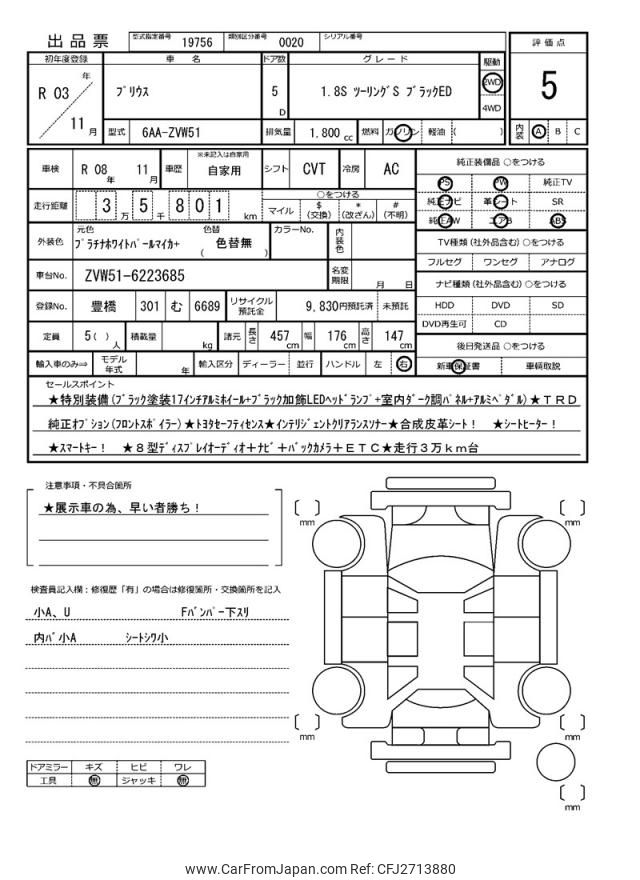 出品票 型式指定番号 19756 類別区分番号 0020 シリアル番号
評価点
5
内装 A B C
初年度登録 車名 ドア数 グレード 駆動
R 03 年 11 月
プリウス 5 D 1.8S ツーリングS ブラックED 2WD 4WD
型式 6AA-ZVW51 排気量 1,800 cc 燃料 ガソリン 軽油 ( )
車検 R 08 年 11 月 車歴 ※未記入は自家用 自家用 シフト CVT 冷房 AC
走行距離 3 万 5 千 8 0 1 km
○をつける
マイル $ (交換) * (改ざん) # (不明)
純正装備品 ○をつける
PS PW 純正TV
純正ナビ 革シート SR
純正AW エアB ABS
外装色 元色 プラチナホワイトパールマイカ+ 色替 ( 色替無 ) カラーNo. 内装色
TV種類 (社外品含む) ○をつける
フルセグ ワンセグ アナログ
車台No. ZVW51-6223685 名変期限 月 日
ナビ種類 (社外品含む) ○をつける
HDD DVD SD
DVD再生可 CD
登録No. 豊橋 301 む 6689 リサイクル預託金 9,830円預託済 未預託
定員 5 ( ) 人 積載量 kg 諸元 長さ 457 cm 幅 176 cm 高さ 147 cm
後日発送品 ○をつける
新車保証書 車輌取説
輸入車のみ⇒ モデル年式 年 輸入区分 ディーラー 並行 ハンドル 左 右
セールスポイント
★特別装備(ブラック塗装17インチアルミホイール+ブラック加飾LEDヘッドランプ+室内ダーク調パネル+アルミペダル)★TRD
純正オプション(フロントスポイラー)★トヨタセーフティセンス★インテリジェントクリアランスソナー★合成皮革シート! ★シートヒーター!
★スマートキー! ★8型ディスプレイオーディオ+ナビ+バックカメラ+ETC★走行3万km台
注意事項・不具合箇所
★展示車の為、早い者勝ち!
検査員記入欄:修復歴「有」の場合は修復箇所・交換箇所を記入
小A、U Fバンパー下スリ
内バ小A シートシワ小
ドアミラー キズ ヒビ ワレ
工具 無 ジャッキ 無
mm
mm
mm
mm
mm
www.CarFromJapan.com Ref: CFJ2713880